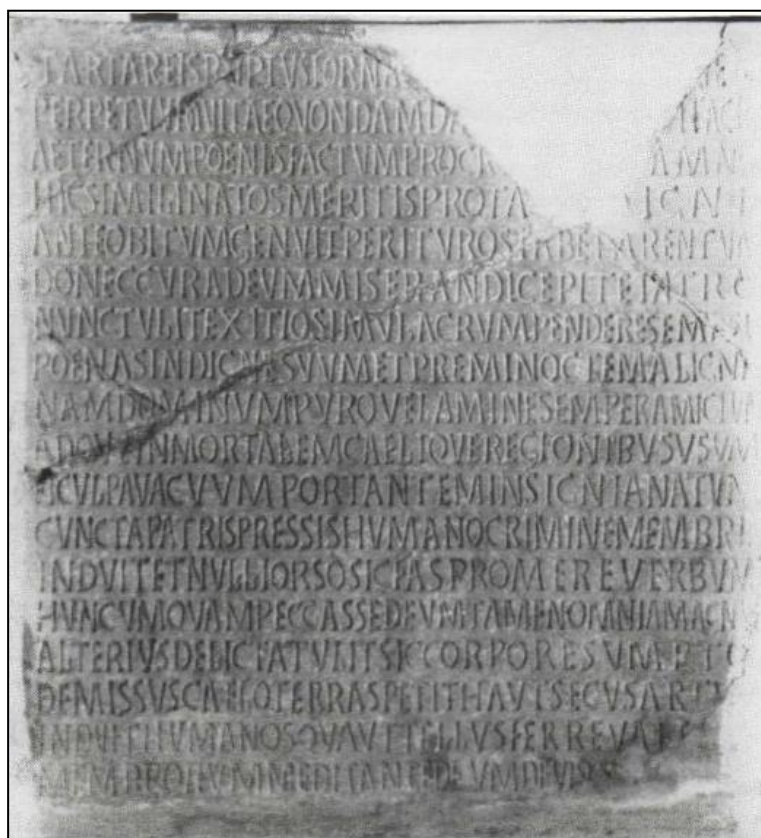 TARTAREIS RUPTUS FORNA
PERPETUEM VITAE QVONDAM DA
AETERNVM POENIS FACTVM PRO
HIC SIMILI NATOS MERITIS PRO
ANTE OBITVM GENVIT PERITVROS LABE PARENTVM
DONEC CVRA DEVM MISERANDI CEPIT ET
NVNC TVLIT EXITIO SIMVLACRVM PENDERE
POENAS INDIGNE SVVM ET PREMI NOCTE MALIGN
NAM DOMINVM PVRO VELAMINE SEMPER AMICTVM
INMORTALEM CAELIQVE REGIONIBVS VSVM
CVLPA VACVVM PORTANTEM INSIGNIA NATVM
CVNCTA PATRIS PRESSIS HVMANO CRIMINE MEMBRI
INDVIT ET NVLLI ORSO SIC FAS PROMERE VERBVM
HVNC VMQVAM PECCASSE DEVM TAMEN OMNIA MAGN
ALTERIVS DELICTA TVLIT SIC CORPORE SVMPTO
DEMISSVS CAELO TERRAS PETIT HAVT SECVS
INDVIT HVMANOS TELLVS FERRE
DEVM